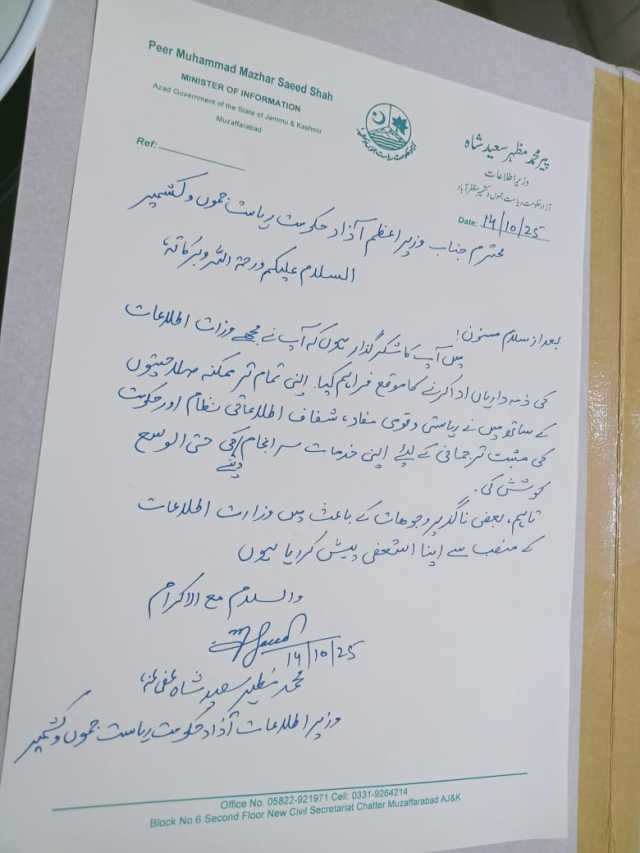 Peer Muhammad Mazhar Saeed Shah
MINISTER OF INFORMATION
Azad Government of the State of Jammu & Kashmir
Muzaffarabad
Ref:
پیر محمد مظہر سعید شاہ
وزیر اطلاعات
آزاد حکومت ریاست جموں و کشمیر مظفرآباد
Date: 14/10/25
محترم جناب وزیراعظم آزاد حکومت ریاست جموں و کشمیر
السلام علیکم ورحمۃ اللہ وبرکاتہ،
بعد از سلام مسنون!
میں آپ کا شکر گذار ہوں کہ آپ نے مجھے وزارت اطلاعات
کی ذمہ داریاں ادا کرنے کا موقع فراہم کیا۔ اپنی تمام تر ممکنہ صلاحیتوں
کے ساتھ میں نے ریاستی و قومی مفاد، شفاف اطلاعاتی نظام اور حکومت
کی مثبت ترجمانی کے لیے اپنی خدمات سرانجام دینے کی حتی الوسع
کوشش کی۔
تاہم، بعض ناگذیر وجوہات کے باعث میں وزارت اطلاعات
کے منصب سے اپنا استعفی پیش کر رہا ہوں
والسلام مع الاکرام
14/10/25
محمد مظہر سعید شاہ عفی عنہ
وزیر اطلاعات آزاد حکومت ریاست جموں و کشمیر
Office No. 05822-921971 Cell: 0331-9264214
Block No 6 Second Floor New Civil Secretariat Chatter Muzaffarabad AJ&K